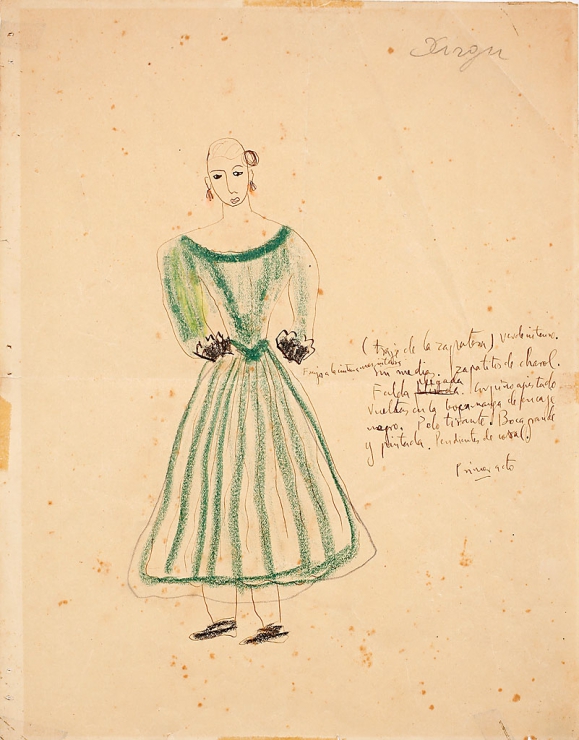 Xirgu
(traje de la zapatera) verde intenso.
sin medias. zapatitos de charol.
Falda plegada. corpiño ajustado
Vueltas en la bocamanga de encaje
negro. Pelo tirante. Boca grande
y pintada. Pendientes de coral.
Primer acto